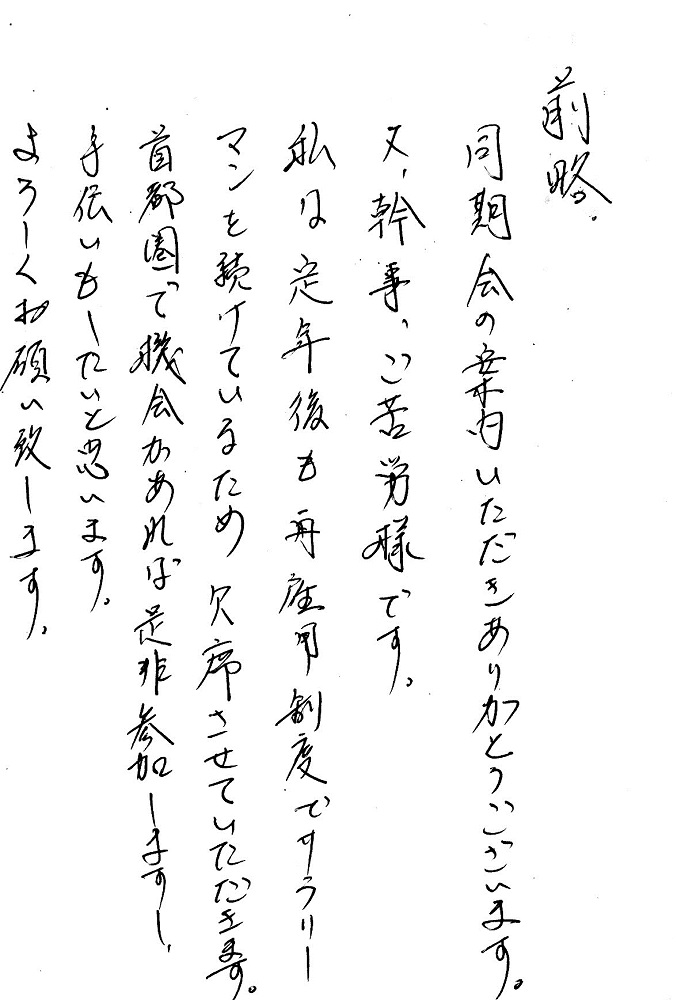 前略、
同期会の案内いただきありがとうございます。
又、幹事、ご苦労様です。
私は定年後も再雇用制度でサラリー
マンを続けているため欠席させていただきます。
首都圏で機会があれば是非参加しますし、
手伝いもしたいと思います。
よろしくお願い致します。